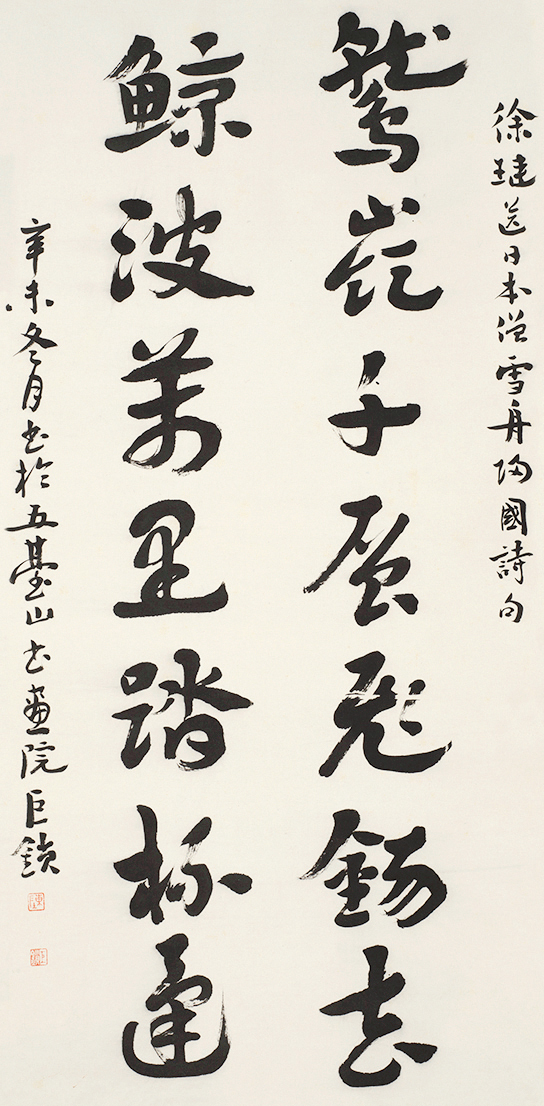 徐璉送日本僧雪舟歸國詩句
鷲嶺千層飛錫去
鯨波萬里踏杯還
辛未冬月書於五臺山書畫院巨鎖